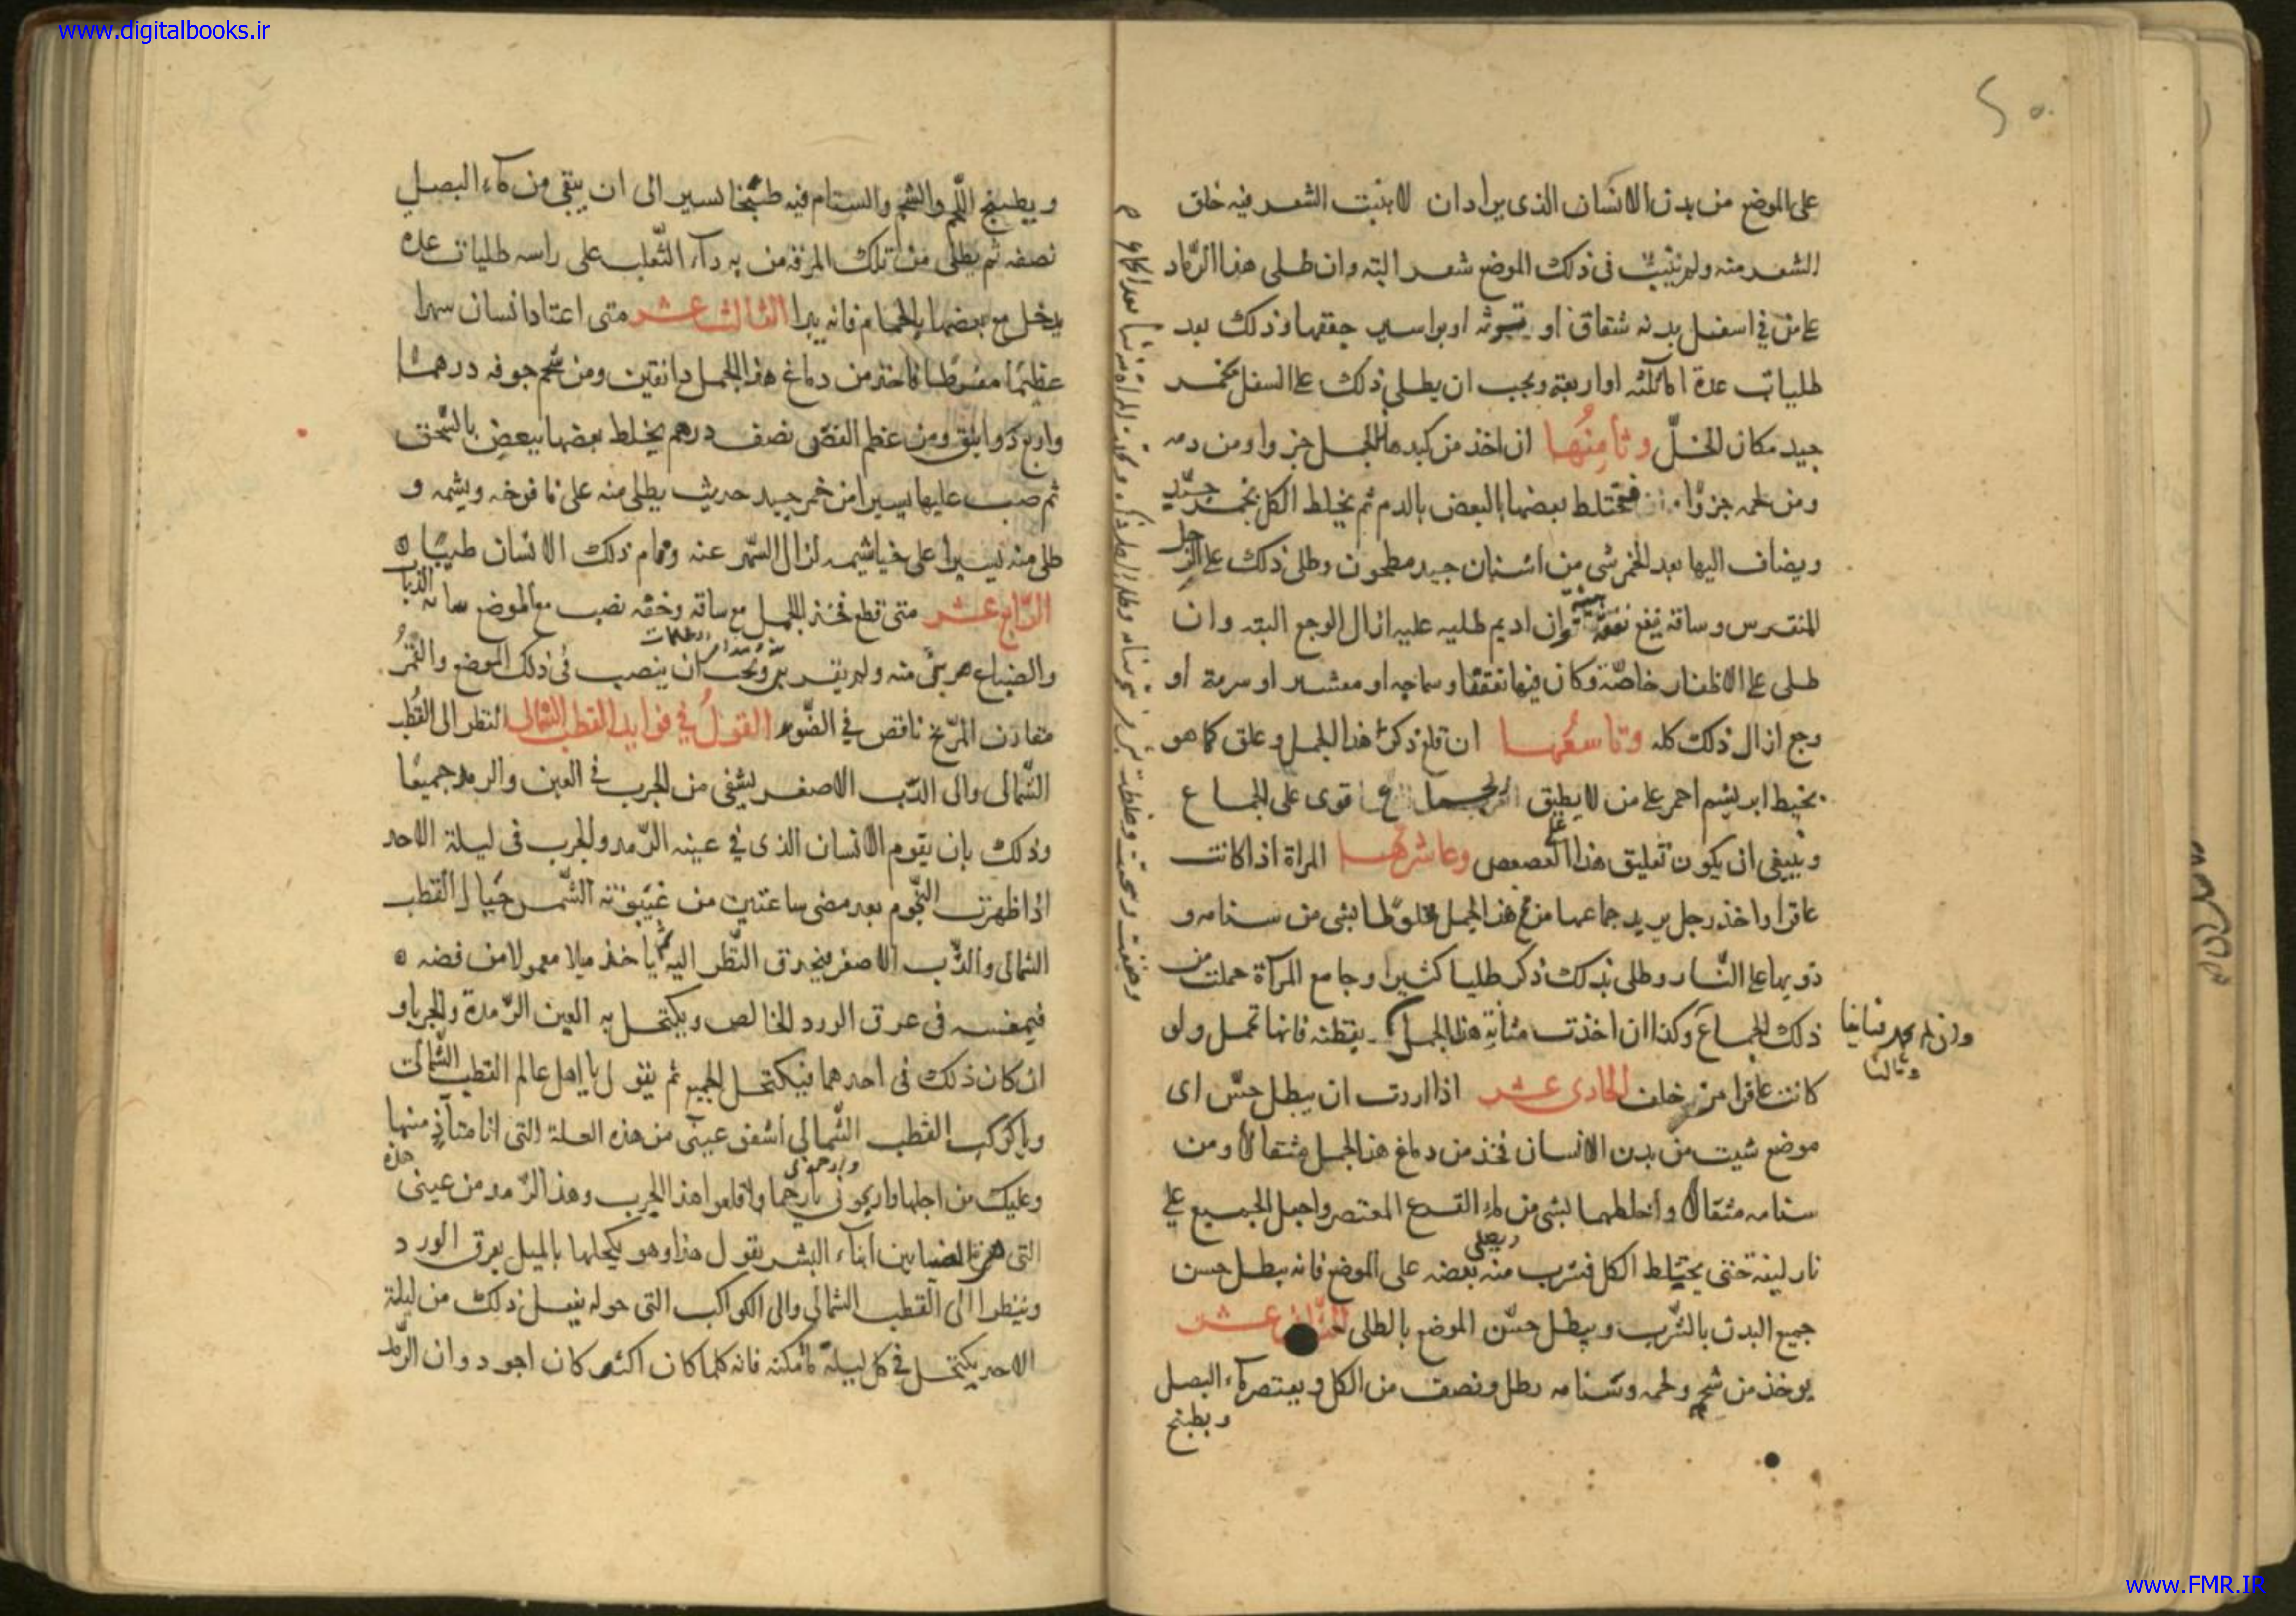 www.digitalbooks.ir
على الموضع من بدن الانسان الذى يراد ان لا ينبت الشعر فيه خلق
الشعر منه ولم ينبت فى ذلك الموضع شعر البته وان طلى هذا الرماد
على من في اسفل بدنه شقاق او او بواسير جففها وذلك بعد
طليات عدة او اربعة ويجب ان يطلى ذلك على السفل بخمر
جيد مكان الخلّ وثامنُها ان اخذ من كبد هذا الجمل جزوا ومن دمه
ومن لحمه جزوا فتختلط بعضها بالبعض بالدم ثم يخلط الكل بخمر جيّد
ويضاف اليها بعد الخمر شى من اشنان جيد مطحون وطلى ذلك على الرجل
المنقرس وساقه نفع وان اديم طليه عليه ازال الوجع البته وان
طلى على الاظفار خاصّة وكان فيها او
وجع ازال ذلك كله وتاسعُها ان قلع ذكر هذا الجمل وعلق كما هو
بخيط ابريشم احمر على من لا يطيق الجماع قوى على الجماع
وينبغى ان يكون تعليق هذا على العصعص وعاشرها المراة اذا كانت
عاقرا واخذ رجل يريد جماعها من مخ هذا الجمل مخلوطا بشى من سنامه و
ذوبها على النّار وطلى بذلك ذكره طليا كثيرا وجامع المرآة حملت من
ذلك الجماع وكذا ان اخذت مثانة هذا الجمل بقطنه فانها تحمل ولو
وان لم
وثالثا
كانت عاقرا من خلف الحادى عشر اذا اردت ان يبطل حسّ اى
موضع شيت من بدن الانسان فخذ من دماغ هذا الجمل مثقالا ومن
سنامه مثقالا واخلطهما بشى من ماء القرع المعتصر واجعل الجميع على
نار لينة حتى يختلط الكل فتشرب منه بعضه على الموضع فانه يبطل حسن
جميع البدن بالشرب ويبطل حسّ الموضع بالطلى الثانى عشر
يوخذ من شحمه ولحمه وسنامه رطل ونصف من الكل ويعتصر ماء البصل
ويطبخ
ويطبخ اللحم والشحم والسنام فيه طبخا يسيرا الى ان يبقى من ماء البصل
نصفه ثم يطلى من تلك المرقة من به دآء الثّعلب على راسه طليات عدة
يدخل مع بعضها الحمام فانه يبرا الثالث عشر متى اعتاد انسان سهرا
عظيمًا مفرطا فاخذ من دماغ هذا الجمل دانقين ومن شحم جوفه درهمًا
واربع دوانق ومن عظم نصف درهم يخلط بعضها ببعض بالسّحق
ثم صب عليها يسيرا من خمر جيد حديث يطلى منه على يافوخه ويشمه و
طلى منه يسيرا على خياشيمه لزال السّهر عنه ونام ذلك الانسان طيبًا
الرّابع عشر متى قطع فخذ الجمل مع ساقه وخفّه نصب مع الموضع الذياب
والضباع هربن منه ولم يقربن ويجب ان ينصب فى ذلك الموضع والقمرُ
مقارن المرّيخ ناقص في الضّوء القول في فوايد القطب الشمالى النظر الى القطب
الشّمالى والى الدّب الاصغر يشفى من الجرب في العين والرمد جميعًا
وذلك بان يقوم الانسان الذى في عينه الرّمد والجرب فى ليلة الاحد
اذا ظهرت النّجوم بعد مضى ساعتين من غيبوبة الشّمس حيال القطب
الشمالى والدّب الاصغر فيحدق النّظر اليه ثم ياخذ ميلا معمولا من فضه
فيغمسه فى عرق الورد الخالص ويكتحل به العين الرّمدة والجربا و
ان كان ذلك فى احدهما فيكتحل الجميع ثم يقول يا اهل عالم القطب الشّمالى
ويا كوكب القطب الشّمالي اشف عينى من هذه العلة التى انا متأذ منها
وعليك من اجلها وارحمونى يا رحما واقلعوا هذا الجرب وهذا الرّمد من عينى
التى بين ابناء البشر يقول هذا وهو يكحلها بالميل بعرق الورد
وينظر الى القطب الشمالى والى الكواكب التى حوله يفعل ذلك من ليلة
الاحد يكتحل في كل ليلة ما امكنه فانه كلما كان اكثر كان اجود وان الرّمد
www.FMR.IR